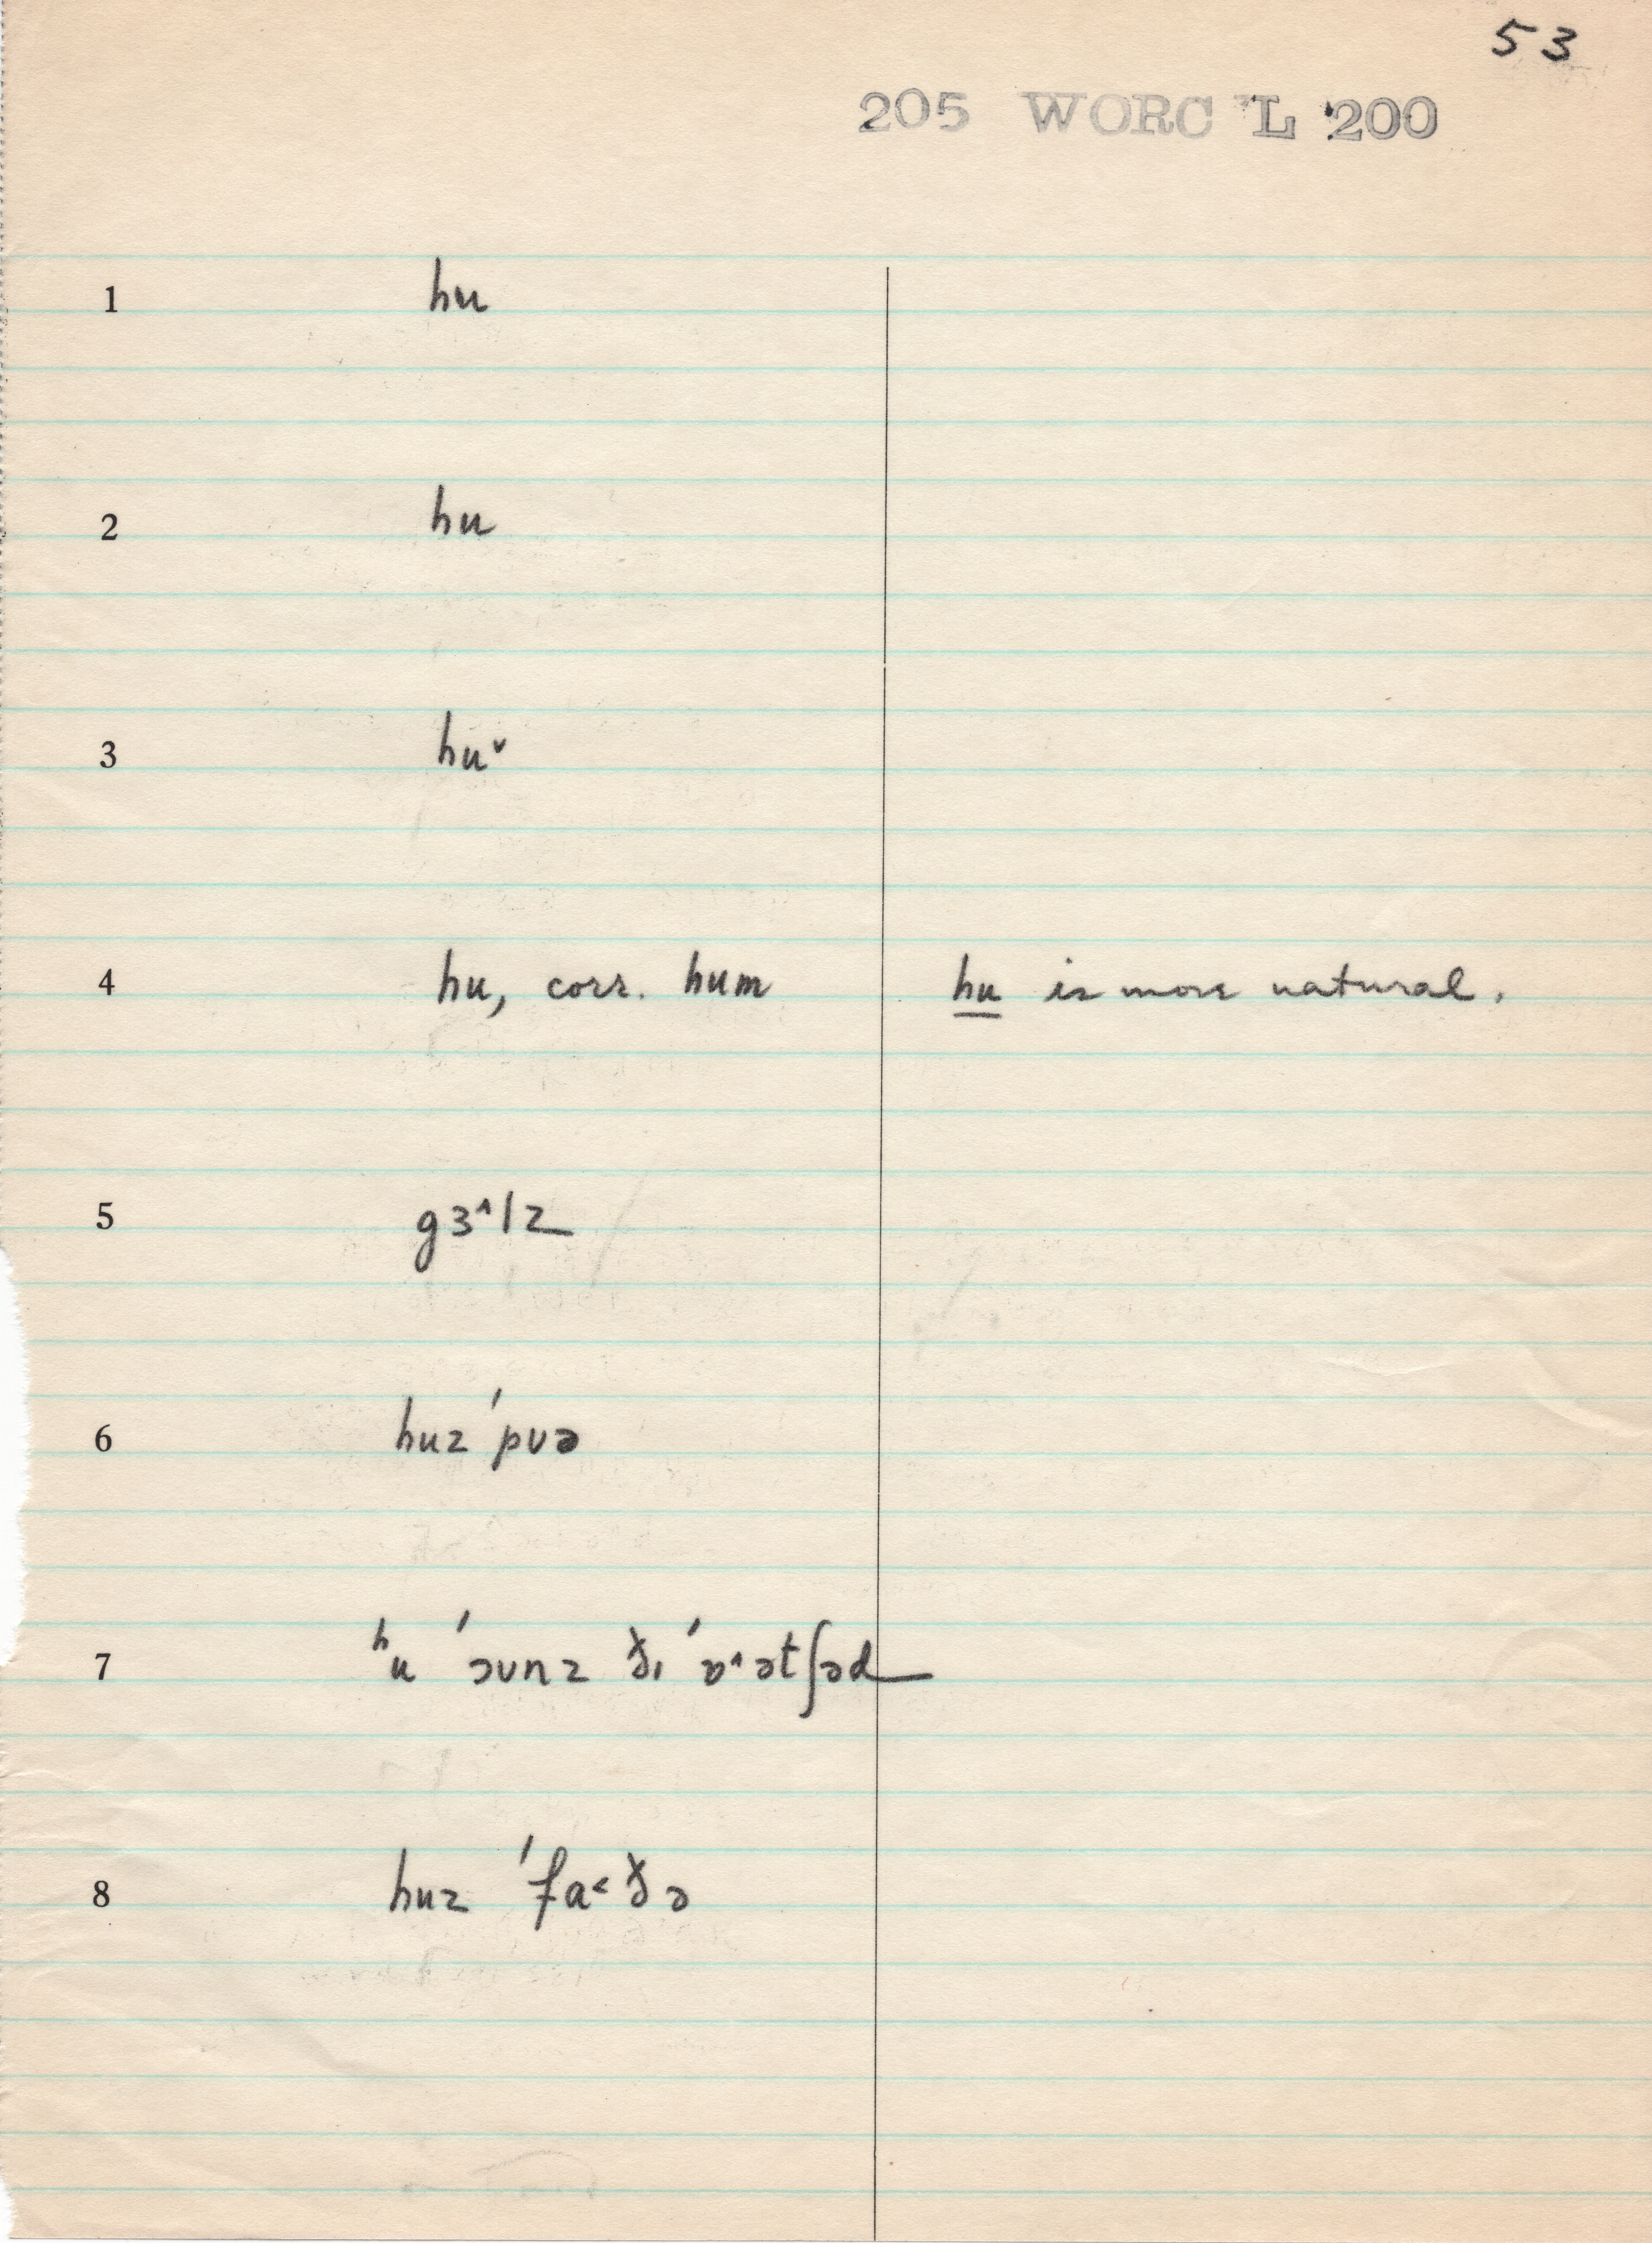 53
205 WORC L 200
1 hu
2 hu
3 hu˅
4 hu, corr. hum hu is more natural.
5 gɜ^lz
6 huz 'pʊə
7 ʰu 'əʊnz ðɪ 'ɒ^ətʃəd
8 huz 'fɑ<ðə